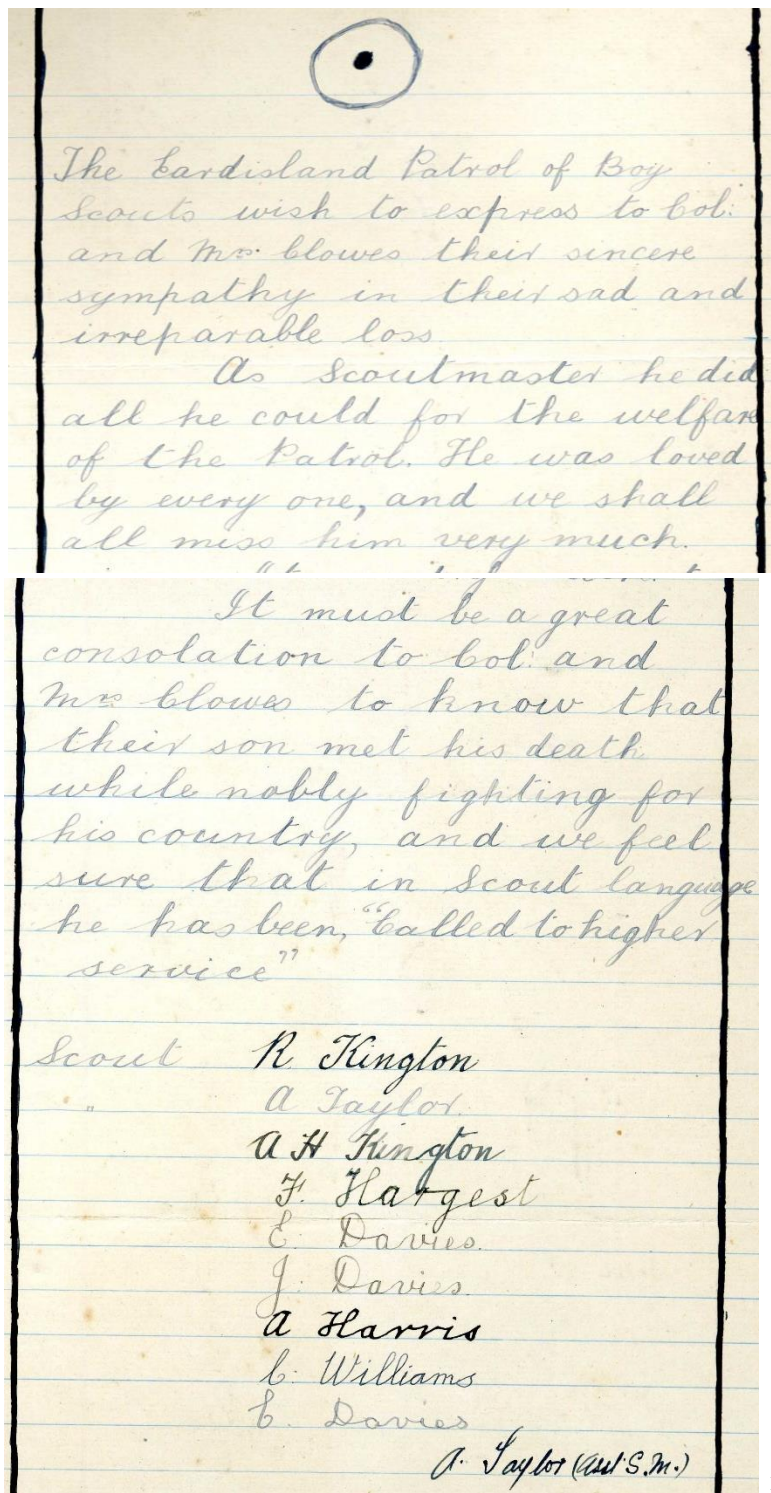 The Eardisland Patrol of Boy
Scouts wish to express to Col:
and Mrs. Clowes their sincere
sympathy in their sad and
irreparable loss
As Scoutmaster he did
all he could for the welfare
of the Patrol. He was loved
by every one, and we shall
all miss him very much.
It must be a great
consolation to Col: and
Mrs Clowes to know that
their son met his death
while nobly fighting for
his country, and we feel
sure that in Scout language
he has been, "Called to higher
service"
Scout R Kington
" A Taylor.
A H Kington
F. Hargest
E. Davies.
J. Davies.
A Harris
C. Williams
C. Davies
A. Taylor (Asst S.M.)